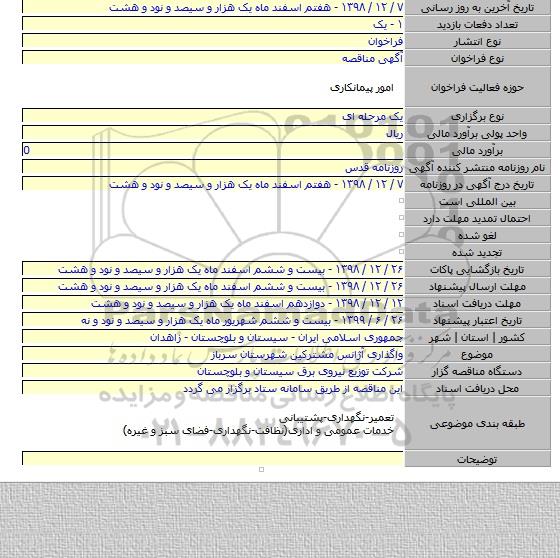 تاریخ آخرین به روز رسانی ۷ / ۱۲ / ۱۳۹۸ - هفتم اسفند ماه یک هزار و سیصد و نود و هشت
تعداد دفعات بازدید ۱ - یک
نوع انتشار فراخوان
نوع فراخوان آگهی مناقصه
حوزه فعالیت فراخوان امور پیمانکاری
نوع برگزاری یک مرحله ای
واحد پولی برآورد مالی ریال
برآورد مالی 0
نام روزنامه منتشر کننده آگهی روزنامه قدس
تاریخ درج آگهی در روزنامه ۷ / ۱۲ / ۱۳۹۸ - هفتم اسفند ماه یک هزار و سیصد و نود و هشت
بین المللی است
احتمال تمدید مهلت دارد
لغو شده
تجدید شده
تاریخ بازگشایی پاکات ۲۶ / ۱۲ / ۱۳۹۸ - بیست و ششم اسفند ماه یک هزار و سیصد و نود و هشت
مهلت ارسال پیشنهاد ۲۶ / ۱۲ / ۱۳۹۸ - بیست و ششم اسفند ماه یک هزار و سیصد و نود و هشت
مهلت دریافت اسناد ۱۲ / ۱۲ / ۱۳۹۸ - دوازدهم اسفند ماه یک هزار و سیصد و نود و هشت
تاریخ اعتبار پیشنهاد ۲۶ / ۶ / ۱۳۹۹ - بیست و ششم شهریور ماه یک هزار و سیصد و نود و نه
کشور | استان | شهر جمهوری اسلامی ایران - سیستان و بلوچستان - زاهدان
موضوع واگذاری آژانس مشترکین شهرستان سرباز
دستگاه مناقصه گزار شرکت توزیع نیروی برق سیستان و بلوچستان
محل دریافت اسناد این مناقصه از طریق سامانه ستاد برگزار می گردد
طبقه بندی موضوعی تعمیر-نگهداری-پشتیبانی
خدمات عمومی و اداری(نظافت-نگهداری-فضای سبز و غیره)
توضیحات
ParsNamadData
پایگاه اطلاع رسانی مناقصه و مزایده
۰۲۱-۸۸۳۴۹۶۷۰-۵